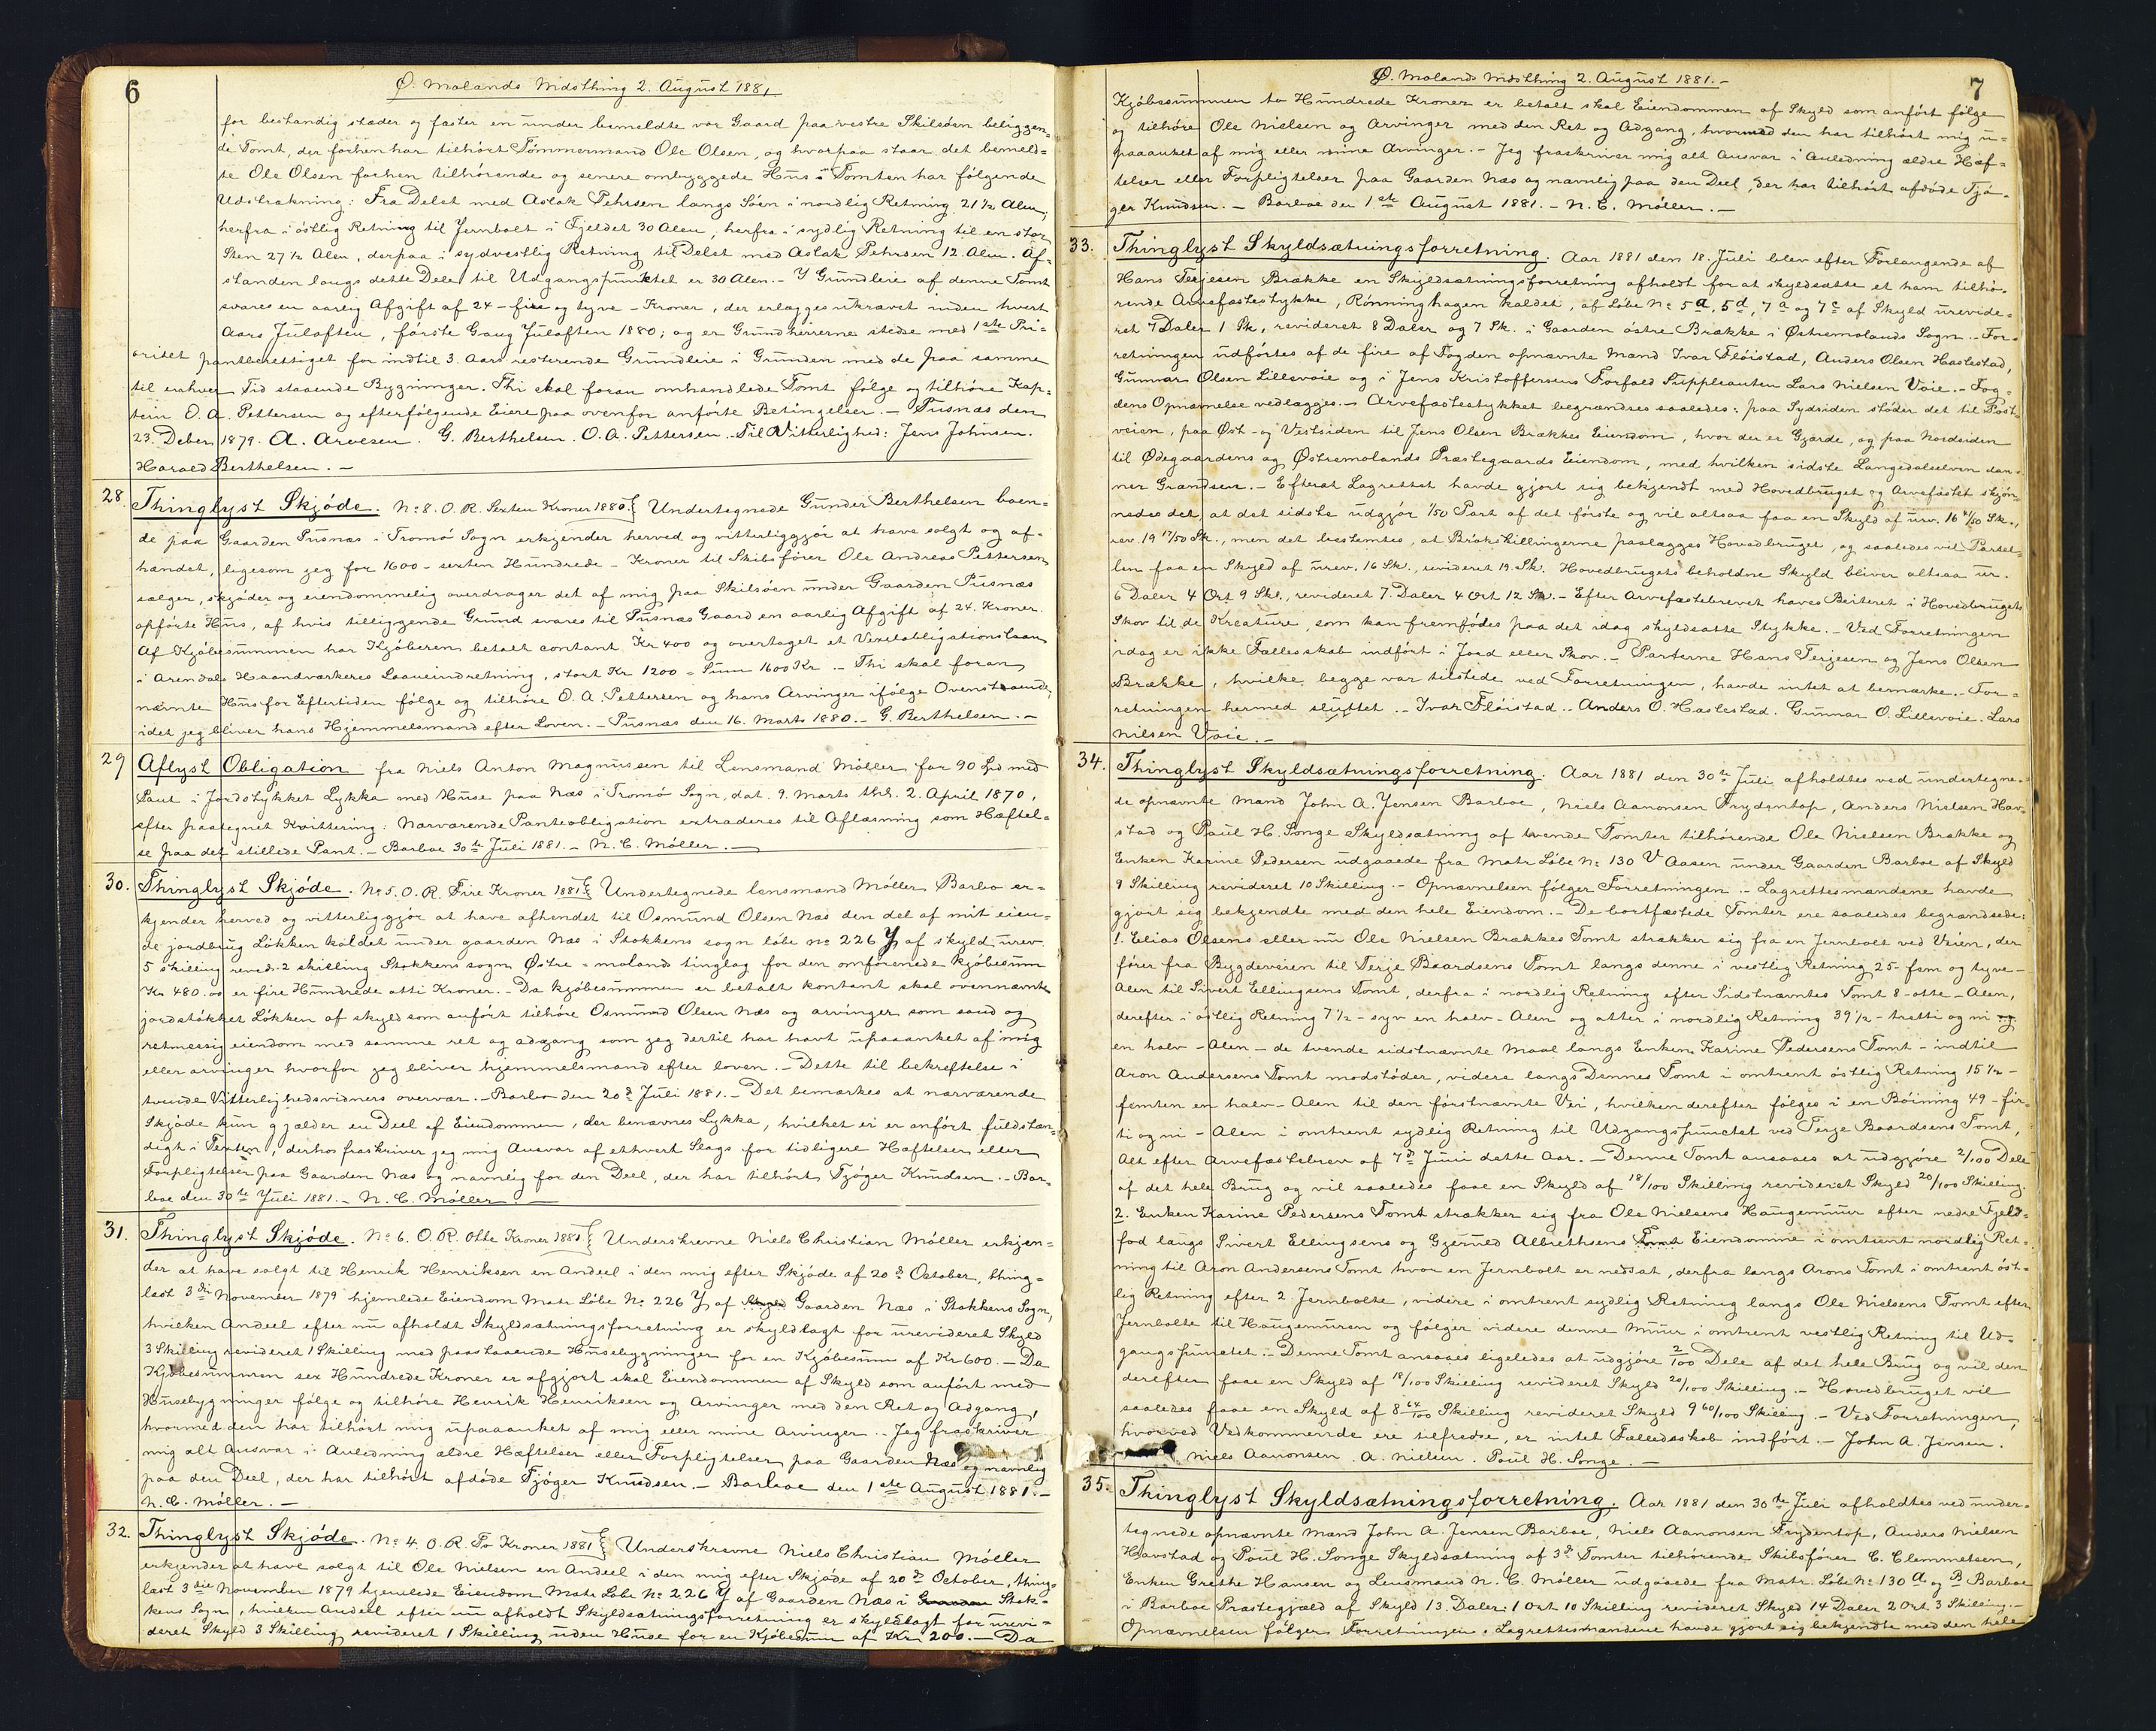 6
Ø. Molands Vidsthing 2. August 1881
for bestandig stæder og fæster en under bemeldte vor Gaard paa vestre Skilsøen beliggen-
de Tomt, der forhen har tilhørt Tømmermand Ole Olsen, og hvorpaa staar det bemeld-
te Ole Olsen forhen tilhørende og senere ombyggede Hus. Tomten har følgende
Udstrækning: Fra Delet med Aslak Pehrsen langs Søen i nordlig Retning 21½ Alen;
herfra i østlig Retning til Jernbolt i Fjeldet 30 Alen, herfra i sydlig Retning til en stor
Sten 27½ Alen, derpaa i sydvestlig Retning til Delet med Aslak Pehrsen 12 Alen. Af-
standen langs dette Dele til Udgangspunktet er 30 Alen. - Y Grundleie af denne Tomt
svares en aarlig Afgift af 24 - fire og tyve - Kroner, der erlægges ukrævet inden hvert
Aars Juleaften, første Gang Juleaften 1880; og er Grundherrerne stedse med 1ste Pri-
oritet pantberettiget for indtil 3. Aars resterende Grundleie i Grunden med de paa samme
til enhver Tid staaende Bygninger. Thi skal foran omhandlede Tomt følge og tilhøre Kap-
tein O. A. Pettersen og efterfølgende Eiere paa ovenfor anførte Betingelser. - Pusnæs den
23. Deber 1879. A. Arvesen. G. Berthelsen. O. A. Pettersen. - Til Vitterlighed: Jens Johnsen.
Harald Berthelsen. -
28 Thinglyst Skjøde. No 8. O. R. Sexten Kroner 1880. Undertegnede Gunder Berthelsen boen-
de paa Gaarden Pusnæs i Tromø Sogn erkjender herved og vitterliggjør at have solgt og af-
hændet, ligesom jeg for 1600 - sexten Hundrede - Kroner til Skibsfører Ole Andreas Pettersen
sælger, skjøder og eiendommelig overdrager det af mig paa Skilsøen under Gaarden Pusnæs
opførte Hus, af hvis tilliggende Grund svares til Pusnæs Gaard en aarlig Afgift af 24. Kroner.
Af Kjøbesummen har Kjøberen betalt contant Kr 400 og overtaget et Vexelobligationslaan
i Arendals Haandværkeres Laaneindretning, stort Kr 1200 = Sum 1600 Kr. - Thi skal foran
nævnte Hus for Eftertiden følge og tilhøre O. A. Pettersen og hans Arvinger ifølge Ovenstaaende,
idet jeg bliver hans Hjemmelsmand efter Loven. - Pusnæs den 16. Marts 1880. - G. Berthelsen. -
29 Aflyst Obligation fra Niels Anton Magnussen til Lensmand Møller for 90 Spd med
Pant i Jordstykket Lykka med Huse paa Næs i Tromø Sogn, dat. 9. Marts thl. 2. April 1870,
efter paategnet Kvittering: Nærværende Panteobligation extraderes til Aflæsning som Hæftel-
se paa det stillede Pant. - Barboe 30te Juli 1881. - N. C. Møller. -
30. Thinglyst Skjøde. No 5. O. R. Fire Kroner 1881 Undertegnede lensmand Møller Barbo er-
kjender herved og vitterliggjør at have afhendet til Osmund Olsen Næs den del af mit eien-
de jordbrug Løkken kaldet under gaarden Næs i Stokkens sogn løbe no 226 y af skyld urev.
5 skilling reved. 2 skilling Stokkens sogn Østre-molands tinglag for den omforenede kjøbesum
Kr 480.00 er fire Hundrede otti Kroner. - Da kjøbesummen er betalt kontant skal ovennævnte
jordstøkket Løkken af skyld som anført tilhøre Osmund Olsen Næs og arvinger som sand og
retmessig eiendom med samme ret og adgang som jeg dertil har havt upaaanket af mig
eller arvinger hvorfor jeg bliver hjemmelsmand efter loven. - Dette til bekreftelse i
tvende Vitterlighedsvidners overvær. - Barbo den 20de Juli 1881. - Det bemærkes at nærværende
Skjøde kun gjælder en Deel af Eiendommen, der benævnes Lykka, hvilket ei er anført fuldstæn-
digt i Texten, derhos fraskriver jeg mig Ansvar af ethvert Slags for tidligere Hæftelser eller
Forpligtelser paa Gaarden Næs og navnlig for den Deel, der har tilhørt Tjøger Knudsen. - Bar-
boe den 30te Juli 1881. - N. C. Møller
31. Thinglyst Skjøde. No 6. O. R. Otte Kroner 1881 Underskrevne Niels Christian Møller erkjen-
der at have solgt til Henrik Henriksen en Andeel i den mig efter Skjøde af 20de October, thing-
læst 3die November 1879 hjemlede Eiendom Matr Løbe No 226 y af Gaarden Næs i Stokkens Sogn,
hvilken Andeel efter nu afholdt Skyldsætningsforretning er skyldlagt for urevideret Skyld
3 Skilling revideret 1 Skilling med paastaaende Husebygninger for en Kjøbesum af Kr 600. - Da
Kjøbesummen sex Hundrede Kroner er afgjort skal Eiendommen af Skyld som anført med
Husebygninger følge og tilhøre Henrik Henriksen og Arvinger med den Ret og Adgang,
hvormed den har tilhørt mig upaaanket af mig eller mine Arvinger. - Jeg fraskriver
mig alt Ansvar i Anledning ældre Hæftelser eller Forpligtelser paa Gaarden Næs og navnlig
paa den Deel, der har tilhørt afdøde Tjøger Knudsen. - Barboe den 1ste August 1881. -
N. C. Møller. -
32. Thinglyst Skjøde. No 4. O. R. To Kroner 1881 Underskrevne Niels Christian Møller
erkjender at have solgt til Ole Nielsen en Andeel i den mig efter Skjøde af 20de October, thing-
læst 3die November 1879 hjemlede Eiendom Matr Løbe No 226 y af Gaarden Næs i Gaarden Stok-
kens Sogn, hvilken Andeel efter nu afholdt Skyldsætningsforretning er skyldlagt for urevi-
deret Skyld 3 Skilling revideret 1 Skilling uden Huse for en Kjøbesum af Kr 200. - Da
7
Ø. Molands Vidsthing 2. August 1881. -
Kjøbesummen to Hundrede Kroner er betalt skal Eiendommen af Skyld som anført følge
og tilhøre Ole Nielsen og Arvinger med den Ret og Adgang, hvormed den har tilhørt mig u-
paaanket af mig eller mine Arvinger. - Jeg fraskriver mig alt Ansvar i Anledning ældre Hæf-
telser eller Forpligtelser paa Gaarden Næs og navnlig paa den Deel, der har tilhørt afdøde Tjø-
ger Knudsen. - Barboe den 1ste August 1881. - N. C. Møller. -
33. Thinglyst Skyldsætningsforretning. Aar 1881 den 18. Juli blev efter Forlangende af
Hans Terjesen Brække en Skyldsætningsforretning afholdt for at skyldsætte et ham tilhø-
rende Arvefæstestykke, Rønninghagen kaldet, af Løbe No 5a, 5d, 7a og 7c af Skyld urevide-
ret 7 Daler 1 Sk, revideret 8 Daler og 7 Sk. i Gaarden østre Brække i Østremolands Sogn. - For-
retningen udførtes af de fire af Fogden opnævnte Mænd Ivar Fløistad, Anders Olsen Haslestad,
Gunnar Olsen Lillevoie og i Jens Kristoffersens Forfald Suppleanten Lars Nielsen Voie. - Fog-
dens Opnævnelse vedlægges. - Arvefæstestykket begrændses saaledes: paa Sydsiden støder det til Post-
veien, paa Øst- og Vestsiden til Jens Olsen Brækkes Eiendom, hvor der er Gjærde, og paa Nordsiden
til Ødegaardens og Østremolands Præstegaards Eiendom, med hvilken sidste Langedalselven dan-
ner Grændsen. - Efterat Lagrettet havde gjort sig bekjendt med Hovedbruget og Arvefæstet skjøn-
nedes det, at det sidste udgjør 1/50 Part af det første og vil altsaa faa en Skyld af urv. 16 /50 Sk.,
rev. 19 17/50 Sk., men det bestemtes, at Brøkskillingerne paalægges Hovedbruget, og saaledes vil Parcel-
len faa en Skyld af urev. 16 Sk., revideret 19. Sk. Hovedbrugets beholdne Skyld bliver altsaa ur.
6 Daler 4 Ort 9 Sk., revideret 7. Daler 4 Ort 12 Sk. - Efter Arvefæstebrevet haves Beiteret i Hovedbrugets
Skov til de Kreature, som kan fremfødes paa det idag skyldsatte Stykke. - Ved Forretningen
idag er ikke Fællesskab indført i Jord eller Skov. - Parterne Hans Terjesen og Jens Olsen
Brække, hvilke begge var tilstede ved Forretningen, havde intet at bemærke. - For-
retningen hermed sluttet. - Ivar Fløistad. - Anders O. Haslestad. Gunnar O. Lillevoie. Lars
Nilsen Voie. -
34. Thinglyst Skyldsætningsforretning. Aar 1881 den 30te Juli afholdtes ved undertegne-
de opnævnte Mænd John A. Jensen Barboe, Niels Aanonsen Frydentop, Anders Nielsen Hav-
stad og Poul H. Songe Skyldsætning af tvende Tomter tilhørende Ole Nielsen Brække og
Enken Karine Pedersen udgaaede fra Matr Løbe No 130 V Aasen under Gaarden Barboe af Skyld
9 Skilling revideret 10 Skilling. - Opnævnelsen følger Forretningen. - Lagrettesmændene havde
gjort sig bekjendte med den hele Eiendom. - De bortfæstede Tomter ere saaledes begrændsede:
1. Elias Olsens eller nu Ole Nielsen Brækkes Tomt strækker sig fra en Jernbolt ved Veien, der
fører fra Bygdeveien til Terje Baardsens Tomt langs denne i vestlig Retning 25 - fem og tyve -
Alen til Sivert Ellingsens Tomt, derfra i nordlig Retning efter Sidstnævntes Tomt 8 - otte - Alen,
derefter i østlig Retning 7½ - syv en halv - Alen og atter i nordlig Retning 39½ - tretti og ni og
en halv - Alen - de tvende sidstnævnte Maal langs Enken Karine Pedersens Tomt - indtil
Aron Andersens Tomt modstøder, videre langs Dennes Tomt i omtrent østlig Retning 15½ -
femten en halv - Alen til den førstnævnte Vei, hvilken derefter følges i en Bøining 49 - fir-
ti og ni - Alen i omtrent sydlig Retning til Udgangspunctet ved Terje Baardsens Tomt,
Alt efter Arvefæstebrev af 7de Juni dette Aar. - Denne Tomt ansaaes at udgjøre 2/100 Dele
af det hele Brug og vil saaledes faae en Skyld af 18/100 Skilling revideret Skyld 20/100 Skilling.
2. Enken Karine Pedersens Tomt strækker sig fra Ole Nielsens Haugemuur efter nedre Fjeld-
fod langs Sivert Ellingsens og Gjerued Albrethsens Tomt Eiendomme i omtrent nordlig Ret-
ning til Aron Andersens Tomt hvor en Jernbolt er nedsat, derfra langs Arons Tomt i omtrent øst-
lig Retning efter 2 Jernbolte, videre i omtrent sydlig Retning langs Ole Nielsens Tomt efter
Jernbolte til Haugemuren og følger videre denne Muur i omtrent vestlig Retning til Ud-
gangspunctet. - Denne Tomt ansaaes ligeledes at udgjøre 2/100 Dele af det hele Brug og vil den
derefter faae en Skyld af 18/100 Skilling revideret Skyld 20/100 Skilling. - Hovedbruget vil
saaledes faae en Skyld af 8 64/100 Skilling revideret Skyld 9 60/100 Skilling. - Ved Forretningen,
hvorved Vedkommende ere tilfredse, er intet Fælledsskab indført. - John A. Jensen.
Niels Aanonsen. A. Nielsen. Poul H. Songe. -
35. Thinglyst Skyldsætningsforretning. Aar 1881 den 30te Juli afholdtes ved under-
tegnede opnævnte Mænd John A. Jensen Barboe, Niels Aanonsen Frydentop, Anders Nielsen
Havstad og Poul H. Songe Skyldsætning af 3de Tomter tilhørende Skibsfører C. Clemmetsen,
Enken Grethe Hansen og Lensmand N. C. Møller udgaaede fra Matr. Løbe No 130 a og B Barboe
i Barboe Præstegjæld af Skyld 13. Daler 1 Ort 10 Skilling revideret Skyld 14 Daler 2 Ort 3 Skilling. -
Opnævnelsen følger Forretningen. Lagrettesmændene havde gjort sig bekjendte med den hele